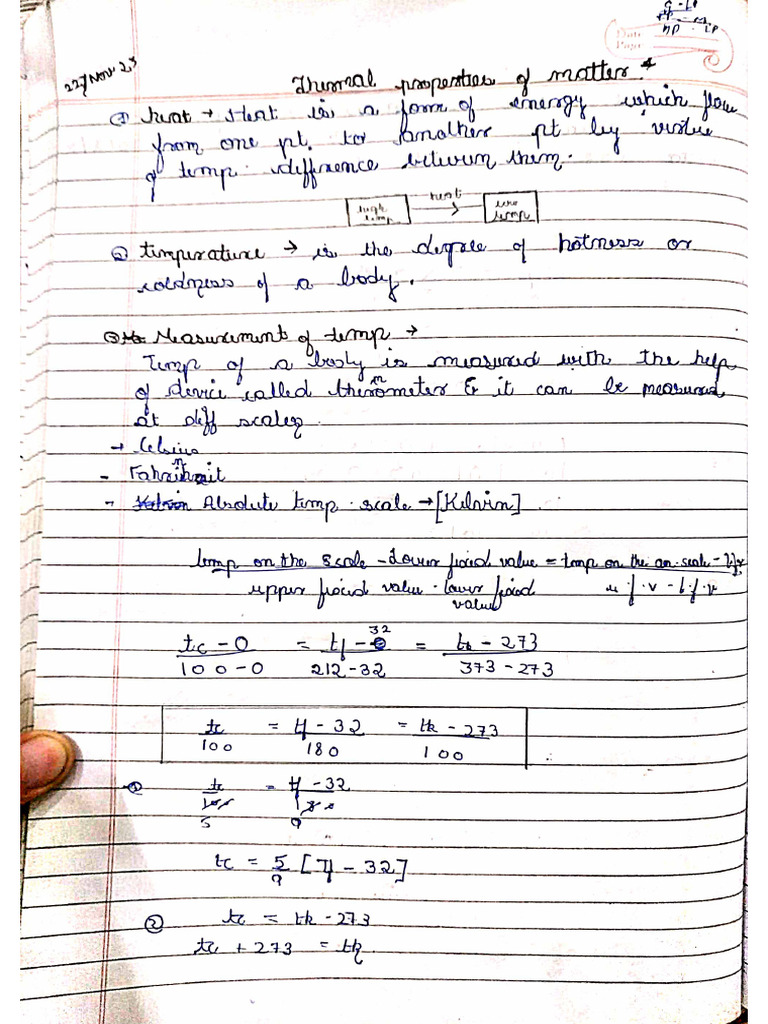 22 Nov 23
Thermal properties of matter
① heat → Heat is a form of energy which flow
from one pt. to another pt by virtue
of temp. difference between them.
high temp. heat low temp
② temperature → is the degree of hotness or
coldness of a body.
Measurement of temp →
Temp of a body is measured with the help
of device called thermometer & it can be measured
at diff scales
→ Celsius
- Fahrenheit
- Absolute temp. scale → [Kelvin]
temp on the scale - Lower fixed value = temp on the an. scale - l.f.v
upper fixed value - lower fixed value u.f.v - l.f.v
tc - 0 = tf - 32 = tk - 273
100 - 0 212 - 32 373 - 273
tc = tf - 32 = tk - 273
100 180 100
① tc = tf - 32
5 9
tc = 5/9 [Tf - 32]
② tc = tk - 273
tc + 273 = tk